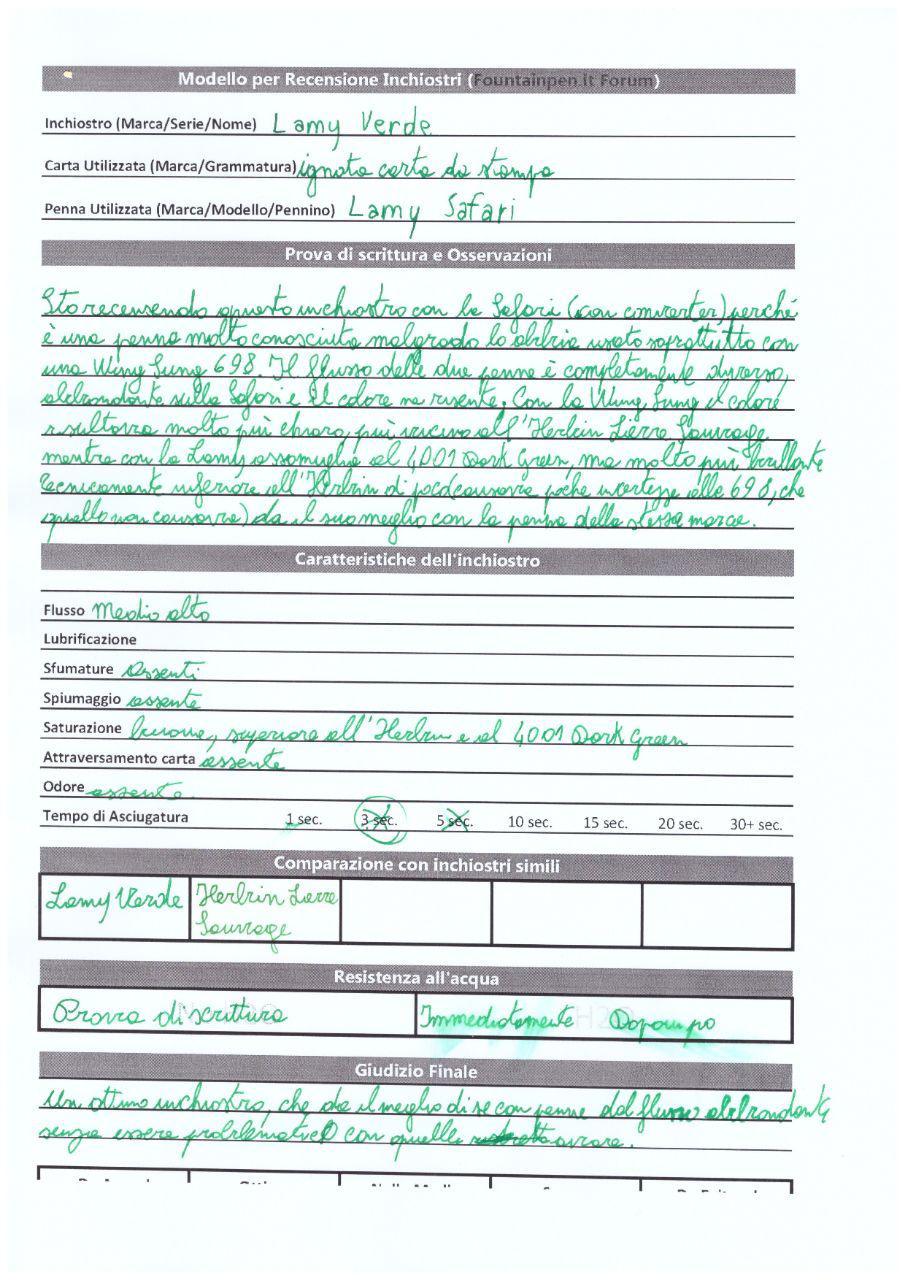 Modello per Recensione Inchiostri (Fountainpen.it Forum)
Inchiostro (Marca/Serie/Nome) Lamy Verde
Carta Utilizzata (Marca/Grammatura) ignota carta da stampa
Penna Utilizzata (Marca/Modello/Pennino) Lamy Safari
Prova di scrittura e Osservazioni
Sto recensendo questo inchiostro con la Safari (con converter) perché
è una penna molto conosciuta malgrado lo abbia usato soprattutto con
una Wing Sung 698. Il flusso delle due penne è completamente diverso,
abbondante sulla Safari e il colore ne risente. Con la Wing Sung il colore
risultava molto più chiaro, più vicino all'Herbin Lierre Sauvage
mentre con la Lamy assomiglia al 4001 Dark Green, ma molto più brillante
Tecnicamente inferiore all'Herbin di poco (causava poche incertezze alla 698, che
quello non causava) da il suo meglio con la penna della stessa marca.
Caratteristiche dell'inchiostro
Flusso Medio alto
Lubrificazione
Sfumature Assenti
Spiumaggio assente
Saturazione buona, superiore all'Herbin e al 4001 Dark Green
Attraversamento carta assente
Odore assente
Tempo di Asciugatura 1 sec. 3 sec. 5 sec. 10 sec. 15 sec. 20 sec. 30+ sec.
Comparazione con inchiostri simili
Lamy Verde Herbin Lierre
Sauvage
Resistenza all'acqua
Prova di scrittura Immediatamente H2O Dopo un po
Giudizio Finale
Un ottimo inchiostro, che da il meglio di se con penne dal flusso abbondante,
senza essere problematico con quelle avare.